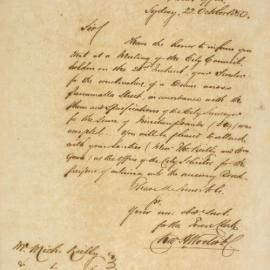 Sydney, 22 October 1850.
Sir/
I have the honor to inform you
that at a Meeting of the City Council
holden on the 21st Instant, your Tender
for the construction of a Drain across
Parramatta Street, in accordance with the
Plan and Specifications of the City Surveyor
for the Sum of Nineteen Pounds (£19) was
accepted. You will be pleased to attend
with your Sureties
at the office of the City Solicitor for the
purpose of entering into the necessary Bond.
I have the honor
Sir
Your
for the Town Clerk
Mr. Mich. Reilly